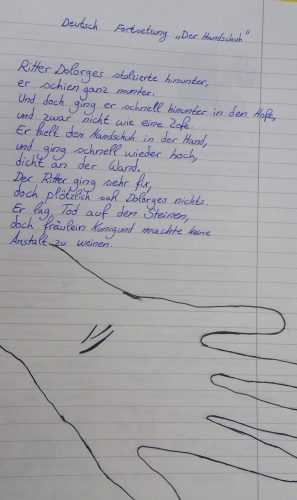 Deutsch Fortsetzung „Der Handschuh"
Ritter Dolorges stolzierte hinunter,
er schien ganz munter.
Und doch ging er schnell hinunter in den Hofe,
und zwar nicht wie eine Zofe.
Er hielt den Handschuh in der Hand,
und ging schnell wieder hoch,
dicht an der Wand.
Der Ritter ging sehr fix,
doch plötzlich sah Dolorges nichts.
Er lag Tod auf den Steinen,
doch fräulein Kunigund machte keine
Anstalt zu weinen.